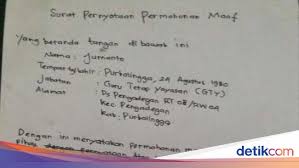 Surat Pernyataan Permohonan Maaf
Yang beranda tangan di bawah ini
Nama : Jumanto
Tempat : Purbalingga, 24 Agustus 1980
Jabatan : Guru Tetap Yayasan (GTY)
Alamat : Ds Pengadegan RT 08/RW04
Kec. Pengadegan
Kab. Purbalingga
Dengan ini menyatakan permohonan
detikcom